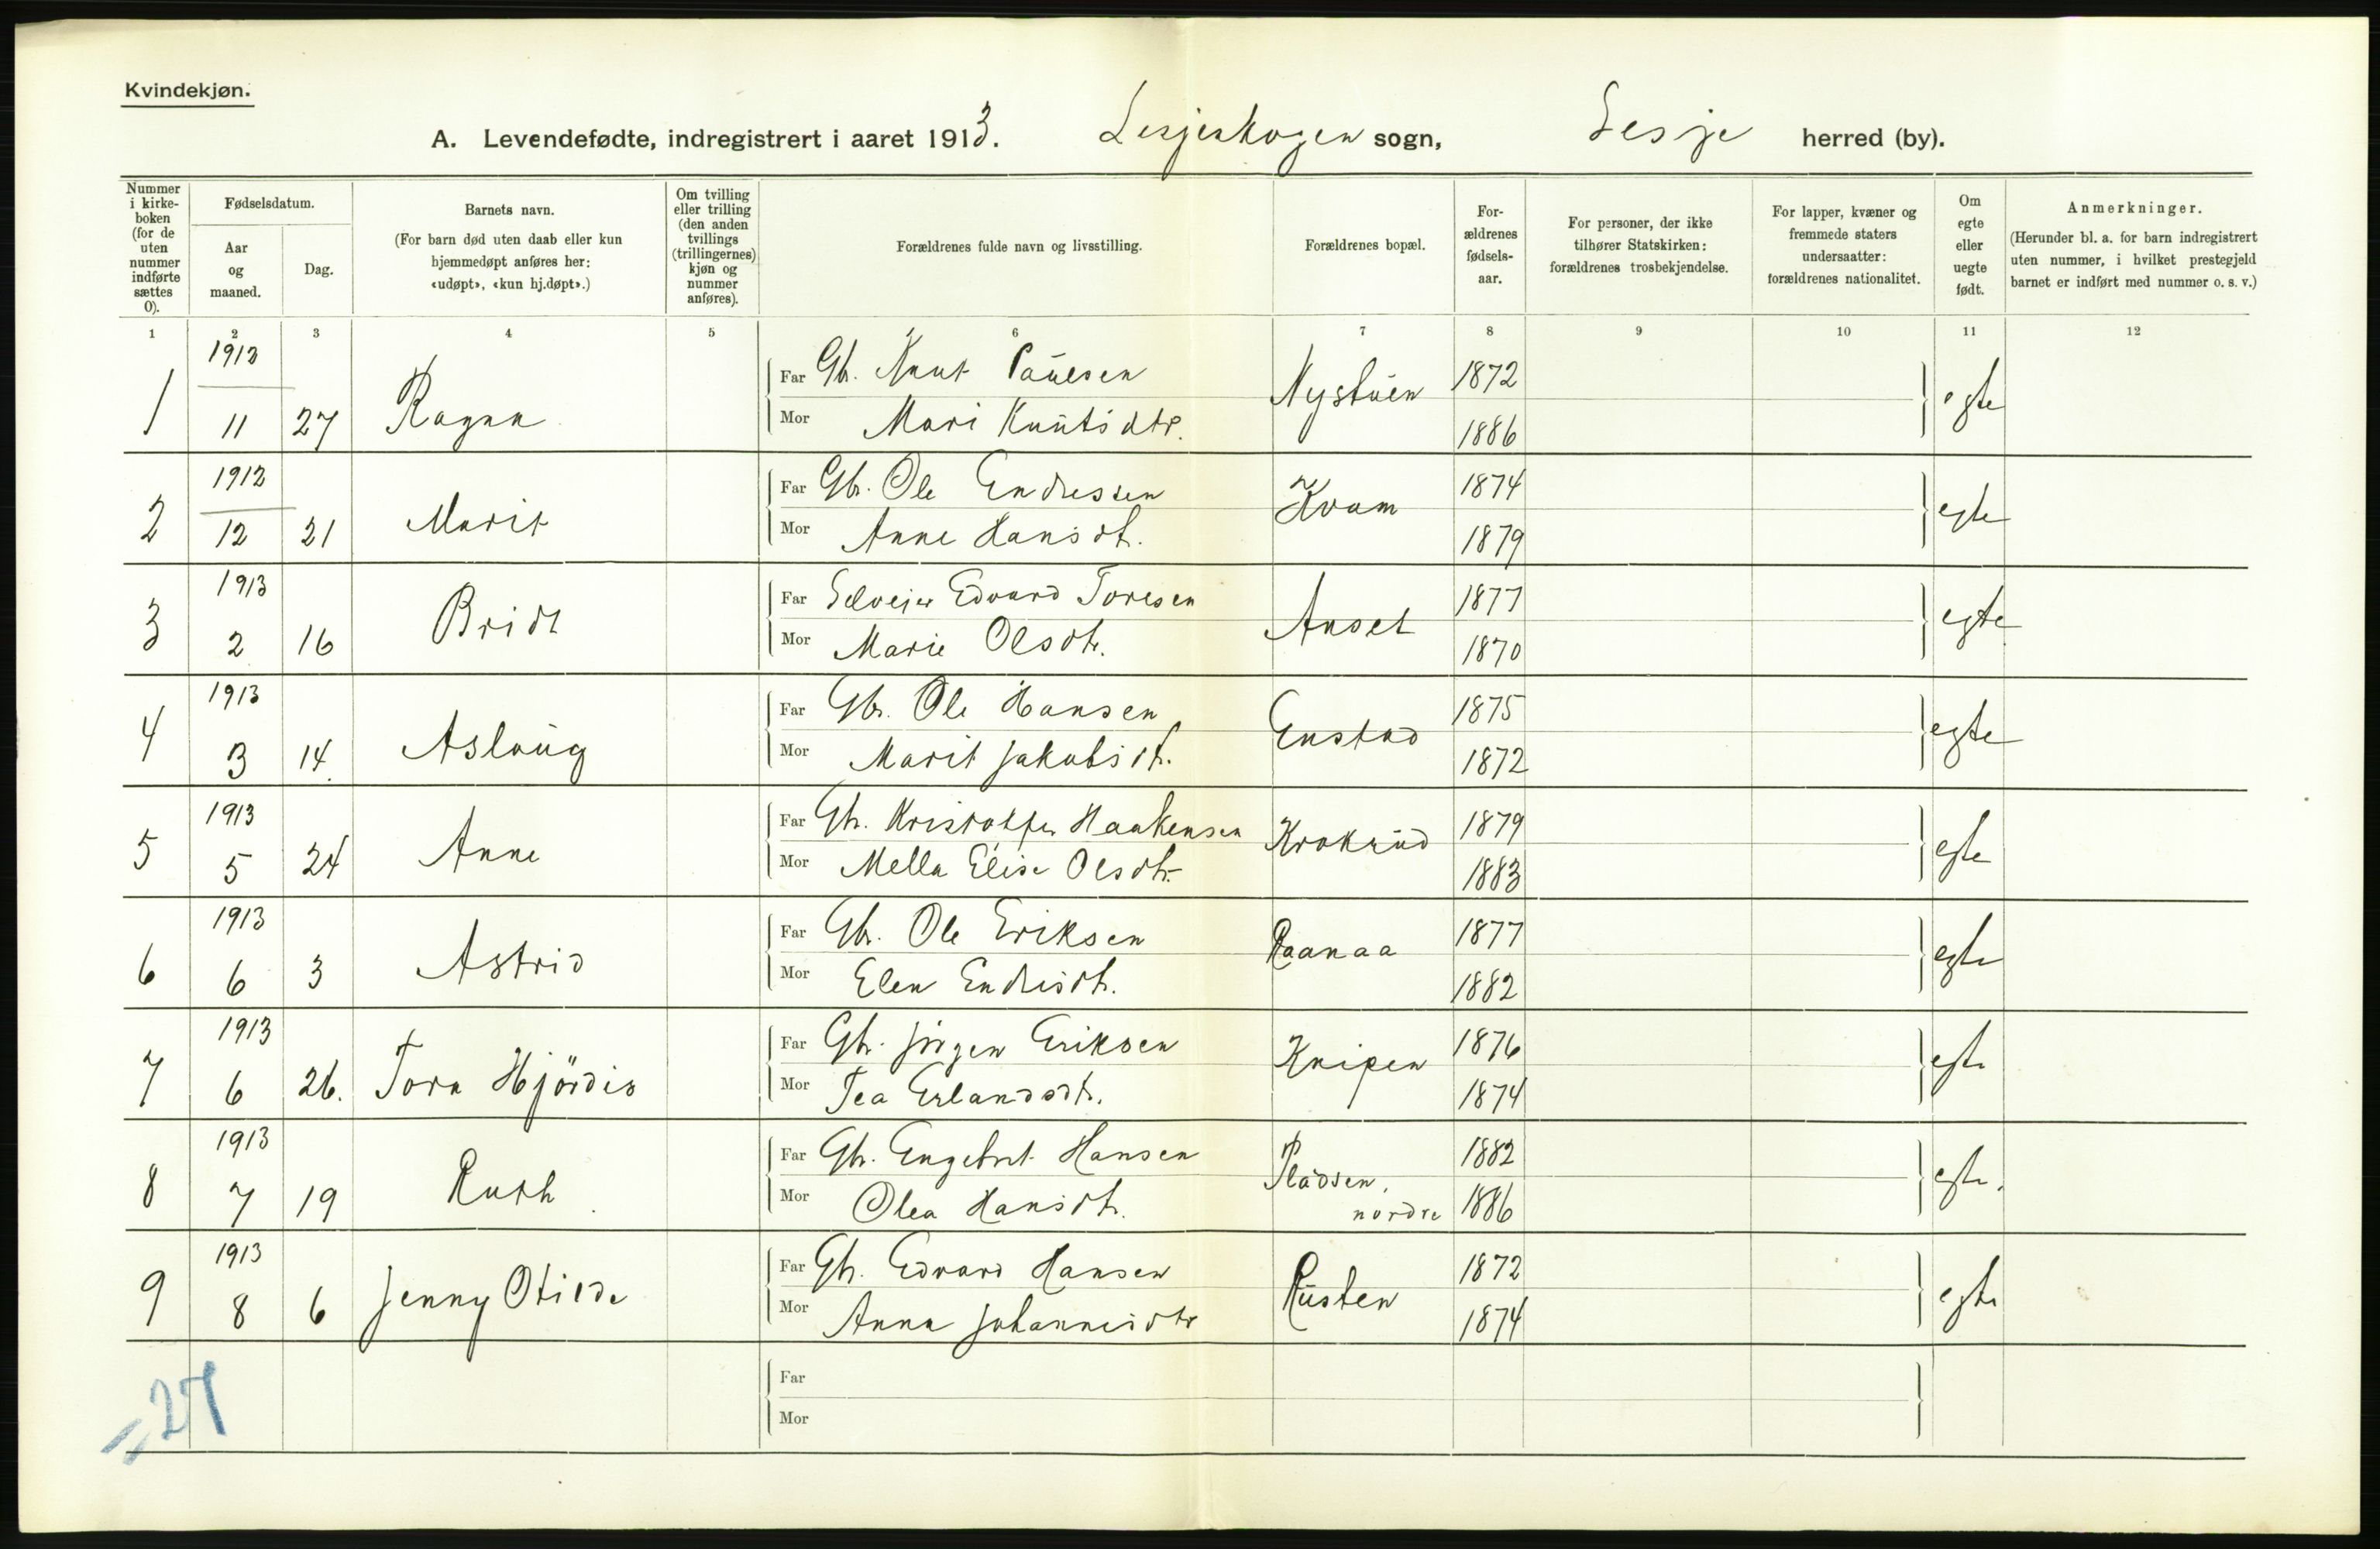 Kvindekjøn.
A. Levendefødte, indregistrert i aaret 1913. Lesjeskogen sogn, Lesje herred (by).
Nummer i kirke- boken (for de uten nummer indførte sættes 0).
Fødselsdatum.
Aar og maaned.
Dag.
Barnets navn.
(For barn død uten daab eller kun hjemmedøpt anføres her: «udøpt», «kun hj.døpt».)
Om tvilling eller trilling (den anden tvillings (trillingernes) kjøn og nummer anføres).
Forældrenes fulde navn og livsstilling.
Forældrenes bopæl.
For- ældrenes fødsels- aar.
For personer, der ikke tilhører Statskirken: forældrenes trosbekjendelse.
For lapper, kvæner og fremmede staters undersaatter: forældrenes nationalitet.
Om egte eller uegte født.
Anmerkninger.
(Herunder bl. a. for barn indregistrert uten nummer, i hvilket prestegjeld barnet er indført med nummer o. s. v.)
1 2 3 4 5 6 7 8 9 10 11 12
1912 Far Gbr. Knut Paulsen 1872
1 11 27 Ragna Nystuen egte
Mor Mari Knutsdtr. 1886
1912 Far Gbr. Ole Endressen 1874
2 12 21 Marit Kvam egte
Mor Anne Hansdtr. 1879
1913 Far Selveier Edvard Toresen 1877
3 2 16 Bridt Anset egte
Mor Marie Olsdtr. 1870
1913 Far Gbr. Ole Hansen 1875
4 3 14. Aslaug Enstad egte
Mor Marit Jakobsdtr. 1872
1913 Far Gbr. Kristoffer Haakensen 1879
5 5 24 Anne Krokrud egte
Mor Mella Elise Olsdtr. 1883
1913 Far Gbr. Ole Eriksen 1877
6 6 3 Astrid Raanaa egte
Mor Elen Endresdtr. 1882
1913 Far Gbr. Jørgen Eriksen 1876
7 6 26. Tora Hjördis Knipen egte
Mor Tea Erlandsdtr. 1874
1913 Far Gbr. Engebret Hansen 1882
8 7 19 Ruth Pladsen, nordre egte.
Mor Olea Hansdtr. 1886
1913 Far Gbr. Edvard Hansen 1872
9 8 6 Jenny Otilde Rusten egte
Mor Anna Johannesdtr 1874
Far
= 27
Mor